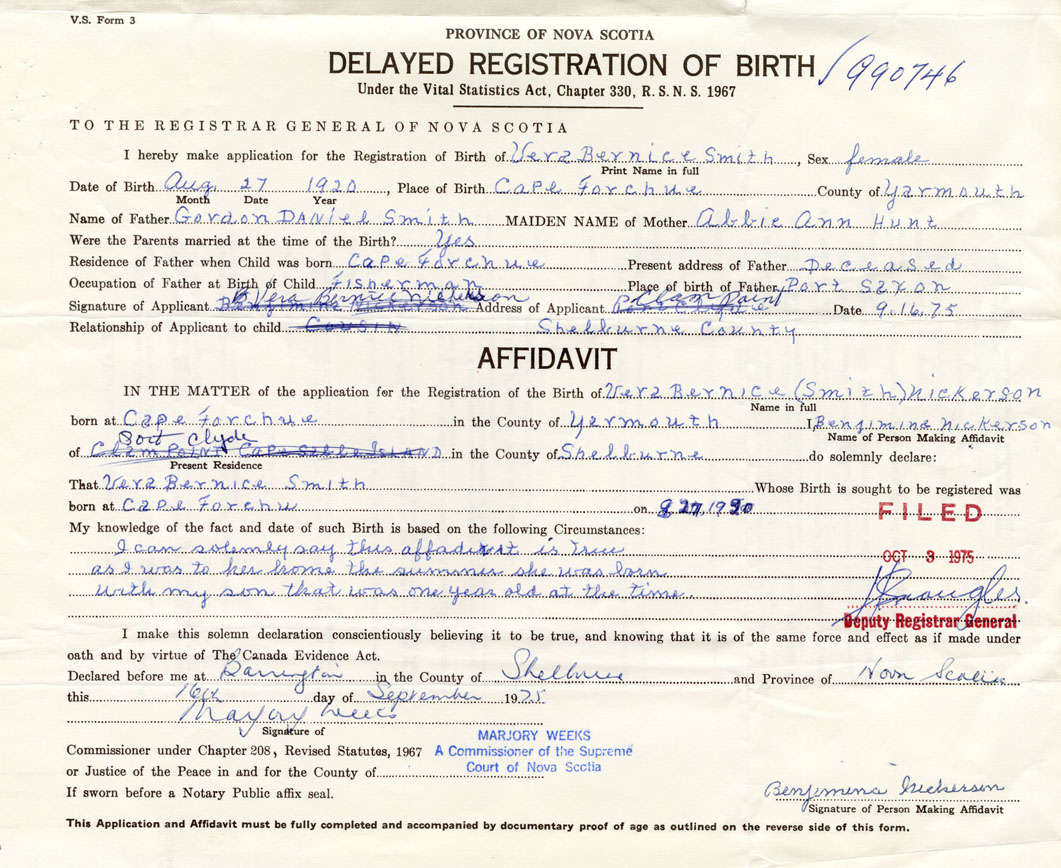 V.S. Form 3
PROVINCE OF NOVA SCOTIA
DELAYED REGISTRATION OF BIRTH / 990746
Under the Vital Statistics Act, Chapter 330, R. S. N. S. 1967
TO THE REGISTRAR GENERAL OF NOVA SCOTIA
I hereby make application for the Registration of Birth of Vera Bernice Smith, Sex female
Print Name in full
Date of Birth Aug 27 1920, Place of Birth Cape Forchue County of Yarmouth
Month Date Year
Name of Father Gordon DANiel Smith MAIDEN NAME of Mother Abbie Ann Hunt
Were the Parents married at the time of the Birth? Yes
Residence of Father when Child was born Cape Forchue Present address of Father Deceased
Occupation of Father at Birth of Child Fisherman Place of birth of Father Port Saxon
Signature of Applicant Vera Bernice Nickerson Address of Applicant Clam Point Date 9.16.75
Relationship of Applicant to child Cousin Shelburne County
AFFIDAVIT
IN THE MATTER of the application for the Registration of the Birth of Vera Bernice (Smith) Nickerson
Name in full
born at Cape Forchue in the County of Yarmouth I Benjimina Nickerson
Name of Person Making Affidavit
Port Clyde
of Clam Point Cape Sable Island in the County of Shelburne do solemnly declare:
Present Residence
That Vera Bernice Smith Whose Birth is sought to be registered was
born at Cape Forchu on 8 27, 1920
FILED
My knowledge of the fact and date of such Birth is based on the following Circumstances:
I can solemnly say this affadivit is true
OCT 3 1975
as I was to her home the summer she was born
with my son that was one year old at the time.
Deputy Registrar General
I make this solemn declaration conscientiously believing it to be true, and knowing that it is of the same force and effect as if made under
oath and by virtue of The Canada Evidence Act.
Declared before me at Barrington in the County of Shelburne and Province of Nova Scotia
this 16th day of September 1975
Marjory Weeks
Signature of
MARJORY WEEKS
Commissioner under Chapter 208, Revised Statutes, 1967 A Commissioner of the Supreme
or Justice of the Peace in and for the County of Court of Nova Scotia
If sworn before a Notary Public affix seal.
Benjimina Nickerson
Signature of Person Making Affidavit
This Application and Affidavit must be fully completed and accompanied by documentary proof of age as outlined on the reverse side of this form.